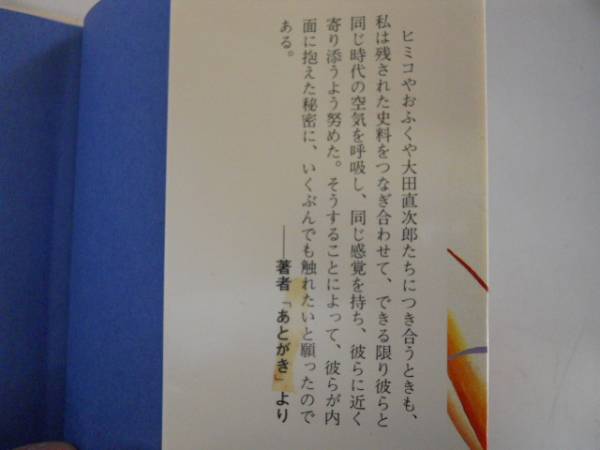 ヒミコやおふくや大田直次郎たちにつき合うときも、
私は残された史料をつなぎ合わせて、できる限り彼らと
同じ時代の空気を呼吸し、同じ感覚を持ち、彼らに近く
寄り添うよう努めた。そうすることによって、彼らが内
面に抱えた秘密に、いくぶんでも触れたいと願ったので
ある。
――著者「あとがき」より